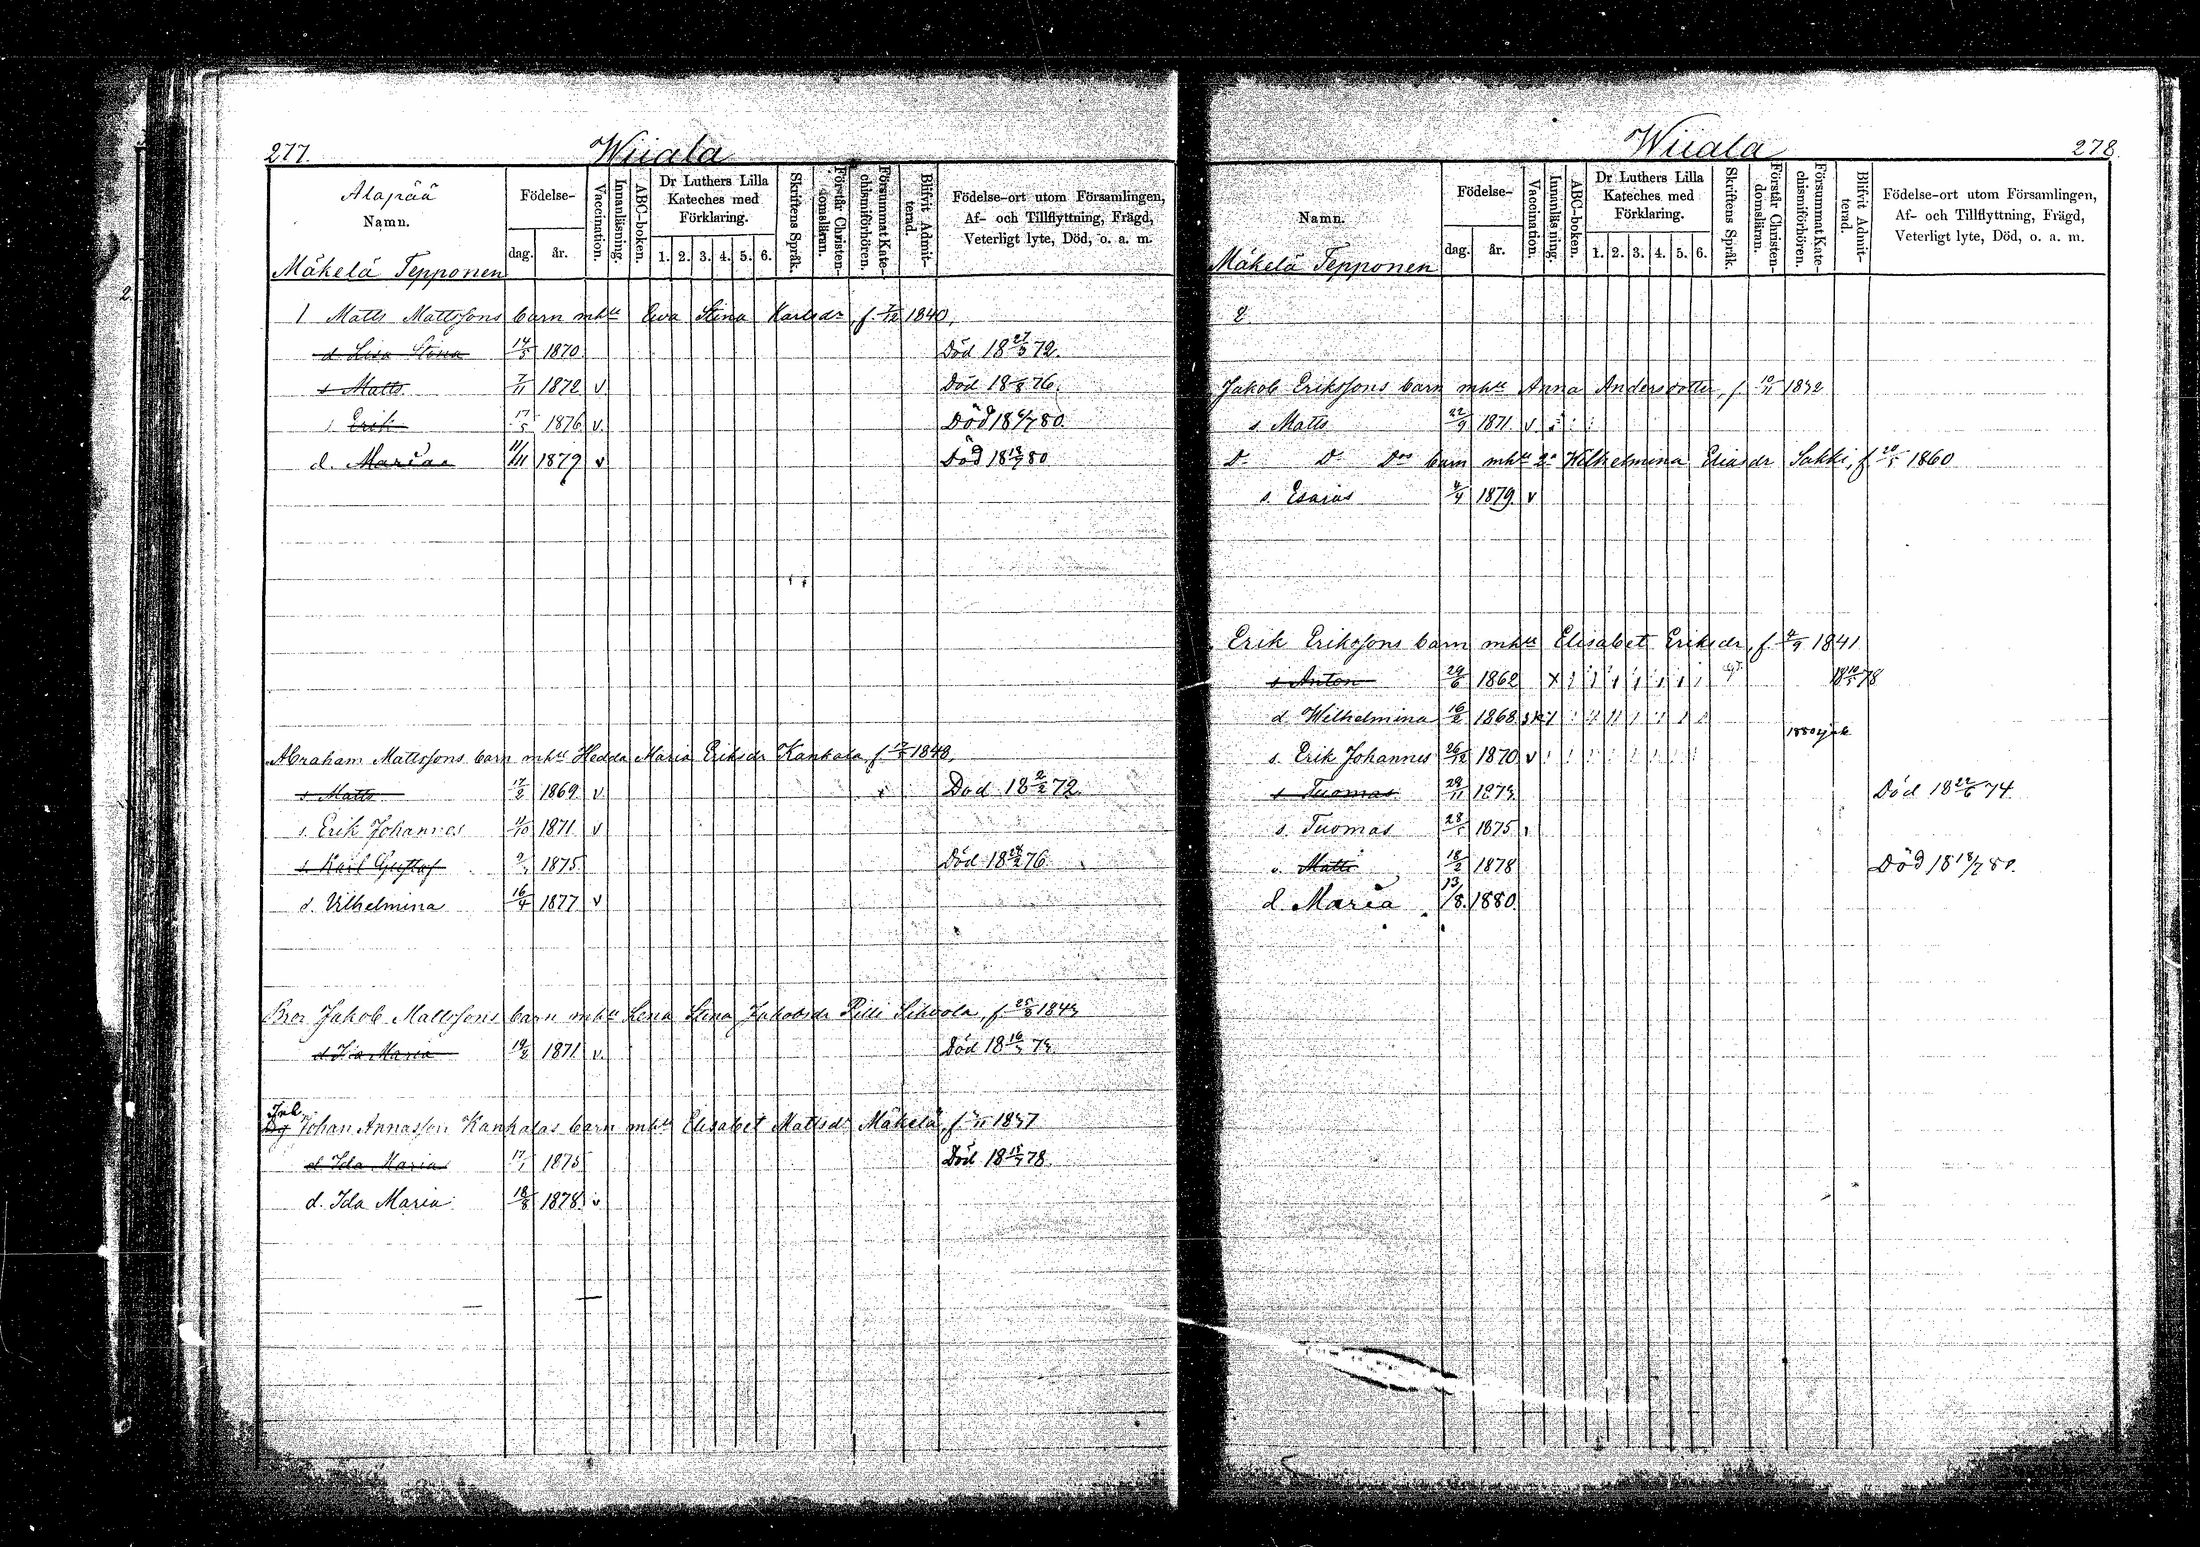 277. Wiiala
Alapää
Namn.
Födelse-
dag. år.
Vaccination.
Innanläsning.
ABC-boken.
Dr Luthers Lilla Kateches med Förklaring.
1. 2. 3. 4. 5. 6.
Skriftens Språk.
Förstår Christendomsläran.
Försummat Katechismiförhören.
Blifvit Admitterad.
Födelse-ort utom Församlingen,
Af- och Tillflyttning, Frägd,
Veterligt lyte, Död, o. a. m.
Mäkelä Tepponen
1 Matts Mattssons barn mhu Ewa Stina Karlsdr, f. 7/12 1840,
d Lisa Stina 14/5 1870 Död 18 27/3 72.
s Matts 7/11 1872 v. Död 18 76.
s. Erik 17/5 1876 v. Död 18 80.
d. Maria 11/11 1879 v Död 18 18/7 80
Abraham Mattssons barn mhu Hedda Maria Eriksdr Kankala f 1848,
s Matts 17/3 1869 v Död 18 2/2 72.
s. Erik Johannes 11/10 1871 v
s. Karl Gustaf 1875 Död 18 28/2 76
d. Vilhelmina 16/4 1877 v
Bror Jakob Mattssons barn mhu Lena Stina Jakobsdr Pilli Sihvola, f. 25/8 184
d Ida Maria 19/2 1871 v. Död 18 16 73.
Inh
Johan Annasson Kankalas barn mhu Elisabet Mattsdr Mäkelä, f 11 1837
d Ida Maria 17/1 1875 Död 18 78.
d. Ida Maria 18/8 1878. v
Wiiala 278.
Namn.
Födelse-
dag. år.
Vaccination.
Innanläsning.
ABC-boken.
Dr Luthers Lilla Kateches med Förklaring.
1. 2. 3. 4. 5. 6.
Skriftens Språk.
Förstår Christendomsläran.
Försummat Katechismiförhören.
Blifvit Admitterad.
Födelse-ort utom Församlingen,
Af- och Tillflyttning, Frägd,
Veterligt lyte, Död, o. a. m.
Mäkelä Tepponen
2
Jakob Erikssons barn mhu Anna Andersdotter, f. 10/11 1832
s. Matts 22/9 1871 v
Do Do Dos barn mhu 2a Wilhelmina Eliasdr Sakki, f 1860
s. Esaias 4/4 1879 v
Erik Erikssons barn mhu Elisabet Eriksdr, f. 4/9 1841
s Anton 29/6 1862 x 18 10/5 78
d Wilhelmina 16/2 1868
1880
s. Erik Johannes 26/12 1870 v
s Tuomas 29/11 1873. Död 18 22/6 74.
s. Tuomas 28/5 1875
s. Matts 18/2 1878 Död 18 18/7 80.
d. Maria 13/8. 1880.